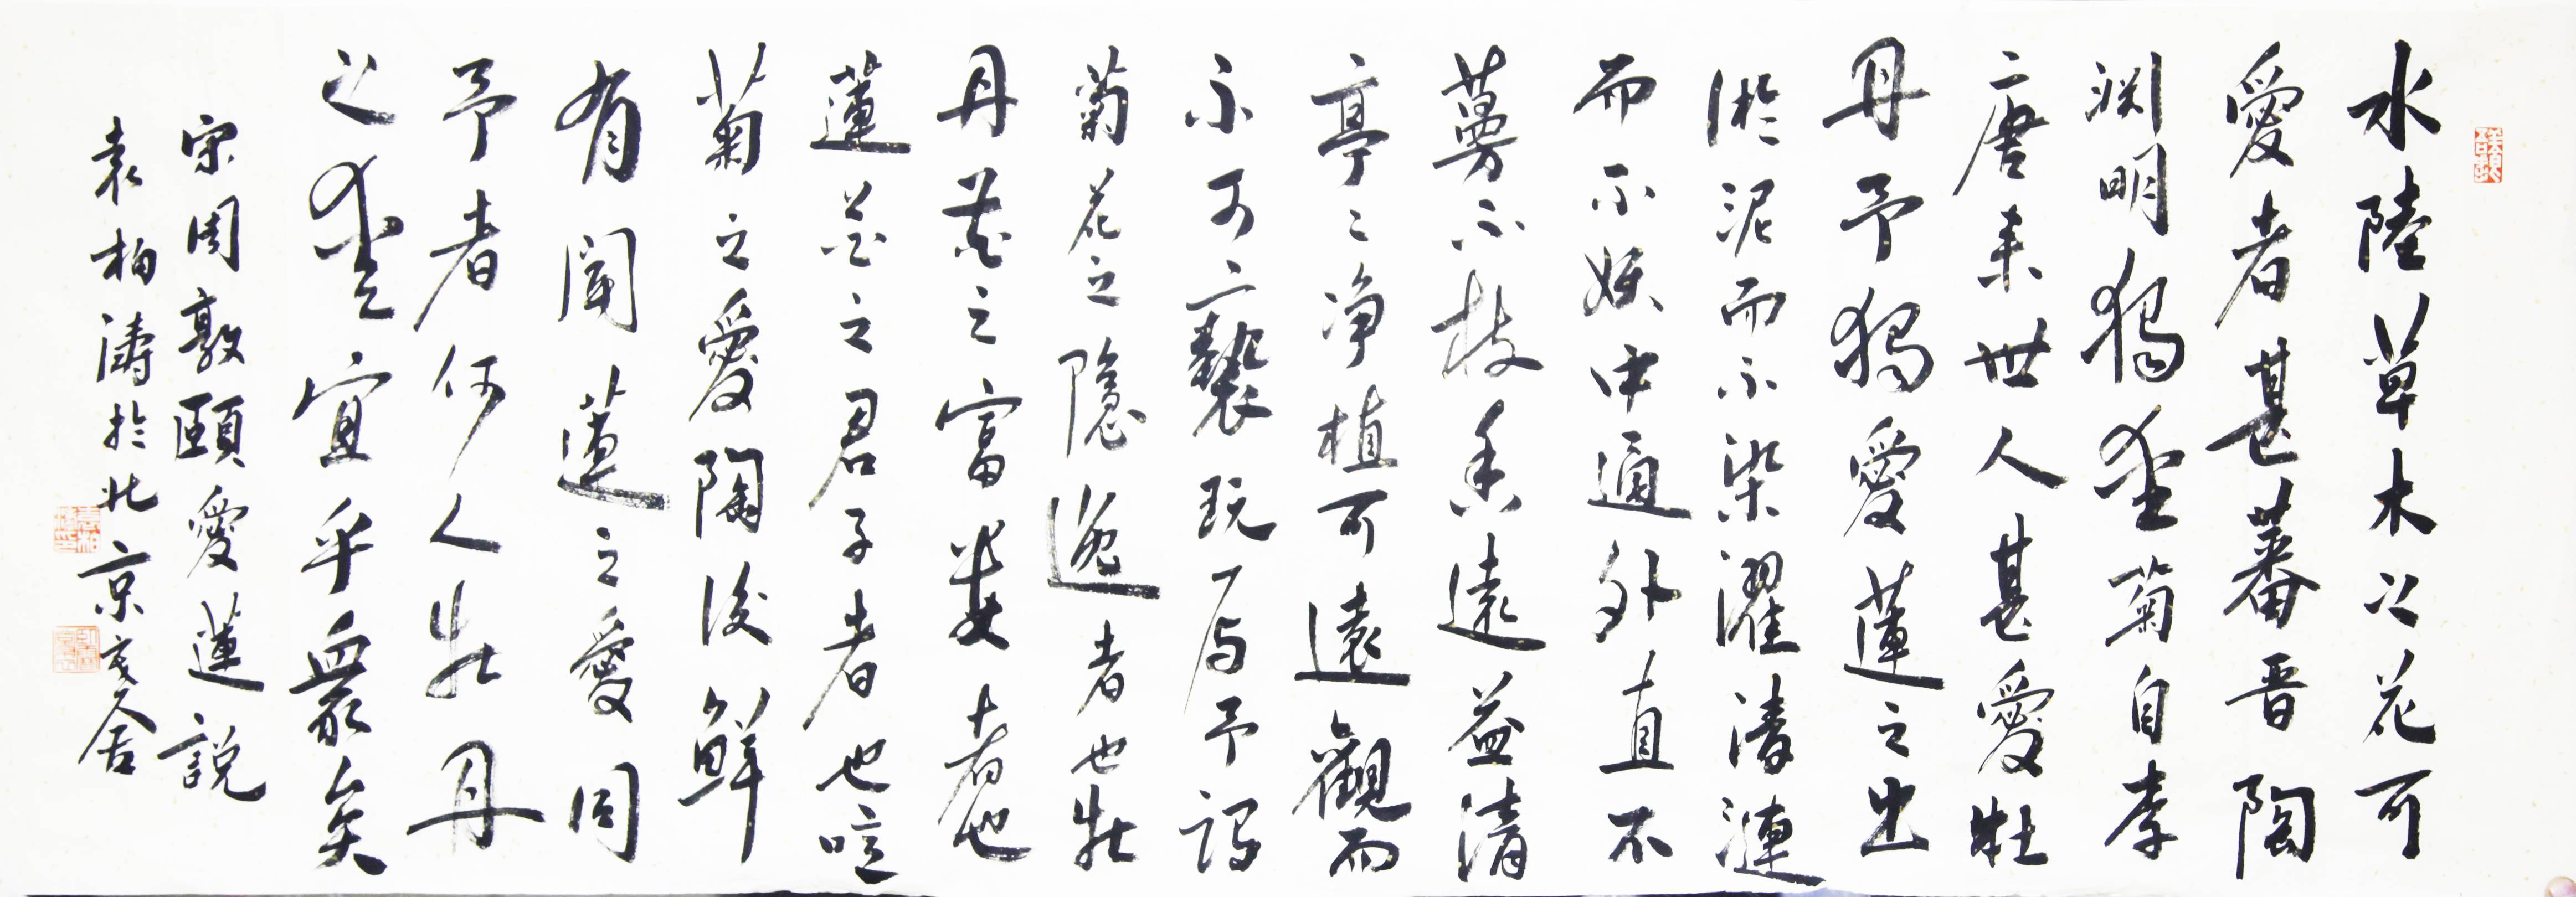 水陸草木之花可
愛者甚蕃晉陶
渊明獨愛菊自李
唐来世人甚愛牡
丹予獨愛蓮之出
淤泥而不染濯清漣
而不妖中通外直不
蔓不枝香遠益清
亭々净植可遠觀而
不可褻玩焉予謂
菊花之隱逸者也牡
丹花之富貴者也
蓮花之君子者也噫
菊之愛陶後鮮
有聞蓮之愛同
予者何人牡丹
之愛宜乎衆矣
宋周敦頤愛蓮説
袁柏濤於北京舍